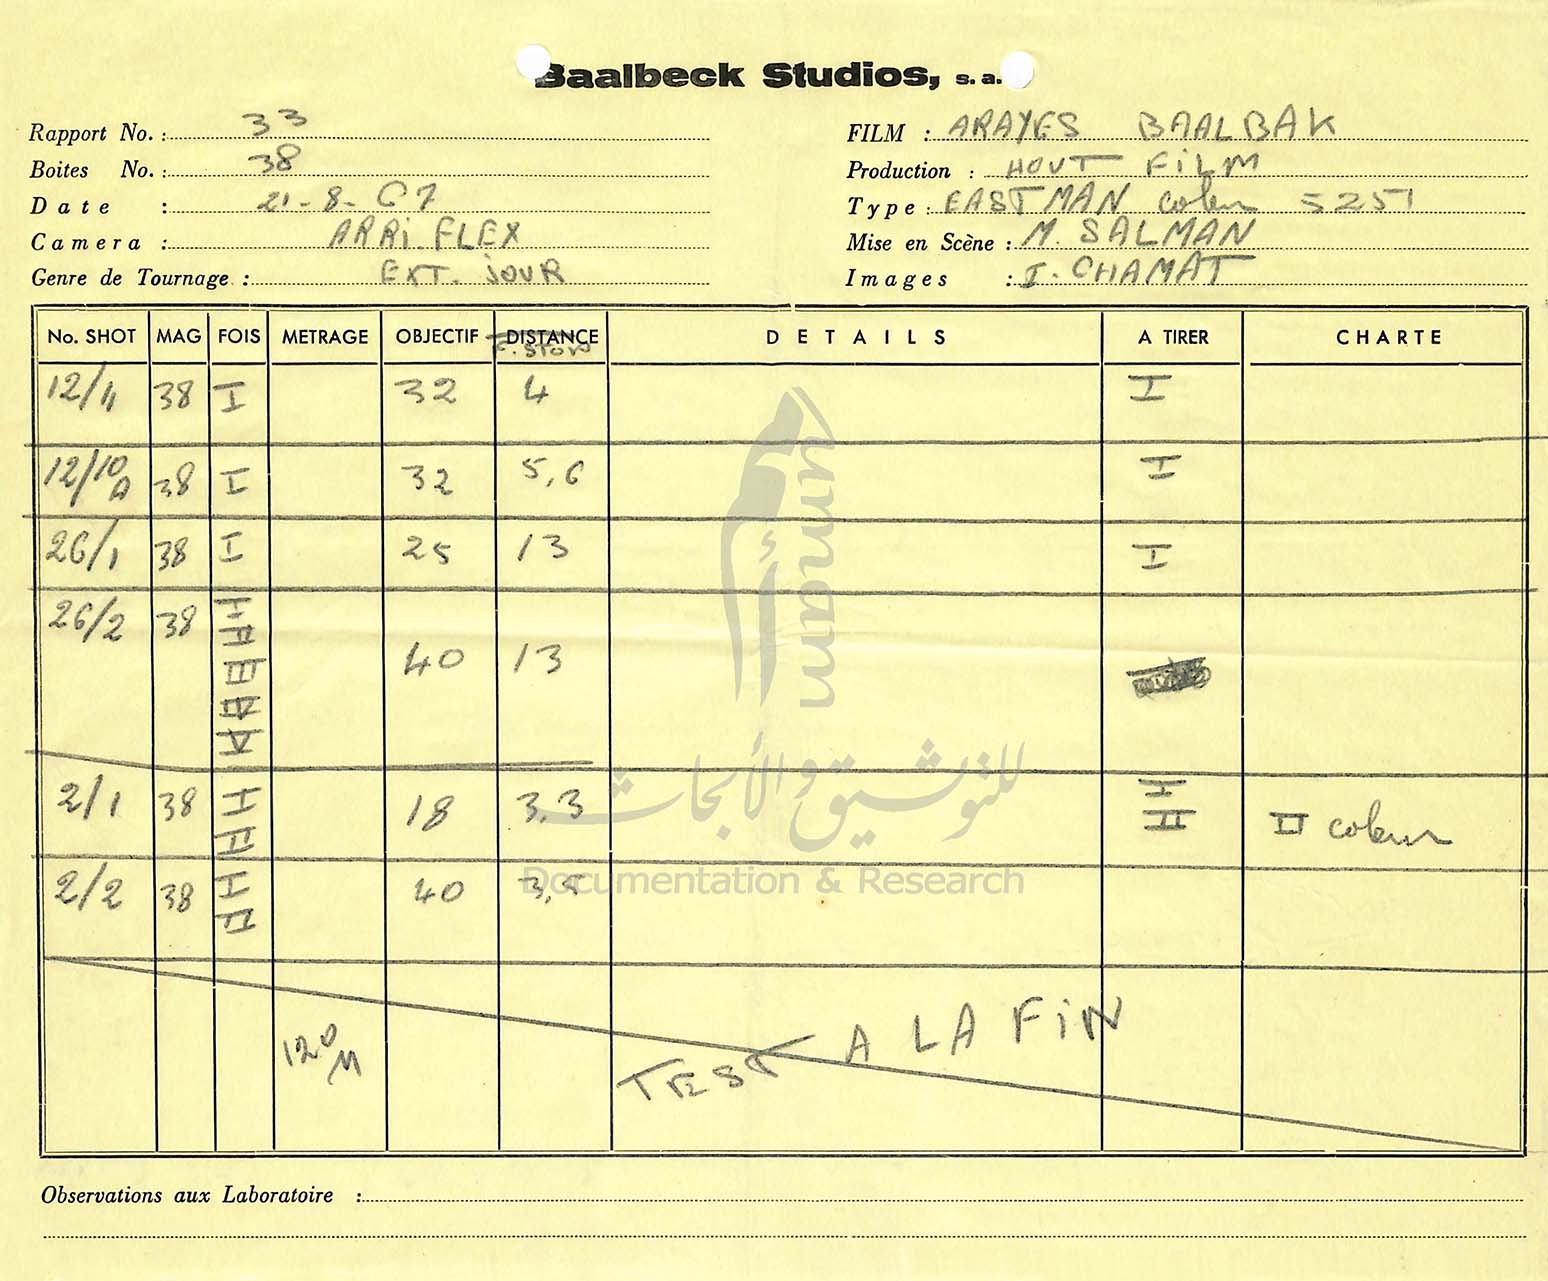 Baalbeck Studios, s.a.
Rapport No. : 33
Boites No. : 38
Date : 21-8-67
Camera : ARRiFLEX
Genre de Tournage : EXT. JOUR
FILM : ARAYES BAALBAK
Production : HOUT FiLM
Type : EASTMAN 5251
Mise en Scène : M. SALMAN
Images : I. CHAMAT
No. SHOT MAG FOIS METRAGE OBJECTIF DISTANCE DETAILS A TIRER CHARTE
F. STOP
12/11 38 I 32 4 I
12/10 A 38 I 32 5,6 I
26/1 38 I 25 13 I
26/2 38 I II III IV V 40 13
2/1 38 I II 18 3,3 I II II
2/2 38 I II 40 3,5
120 M
TEST A LA FiN
Observations aux Laboratoire :
umam
أمم
للتوثيق و الأبحاث
Documentation & Research